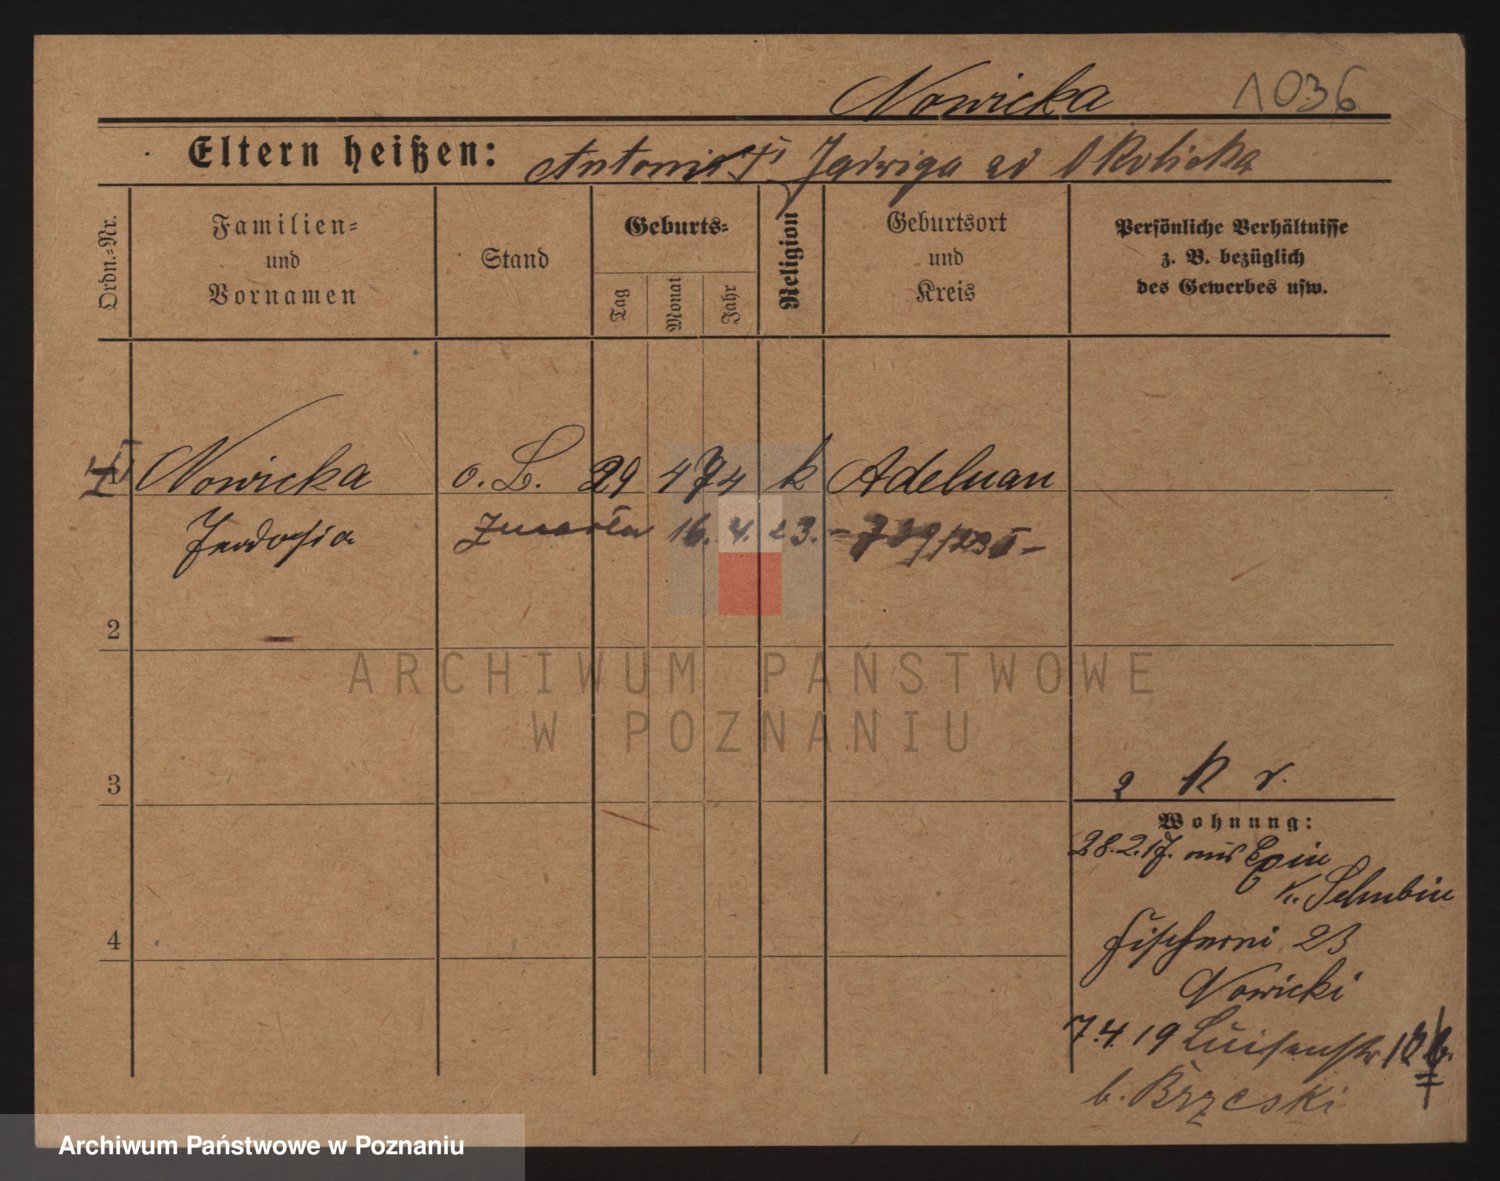 Nowicka 1036
Eltern heißen: Antoni i Jadwiga Okolicka
Ordn.=Nr.
Familien= und Vornamen
Stand
Geburts=
Tag
Monat
Jahr
Religion
Geburtsort und Kreis
Persönliche Verhältnisse z. B. bezüglich des Gewerbes usw.
Nowicka o. B. 29 4 74 k Adelnau
Teodosia Zmarła 16. 4. 23. – 739/23 –
2
ARCHIWUM PAŃSTWOWE
W POZNANIU
3
Wohnung:
28.2.17. aus Exin
K. Schubin
Fischerei 23
Nowicki
7.4.19 Luisenstr
b. Brzeski
4
Archiwum Państwowe w Poznaniu